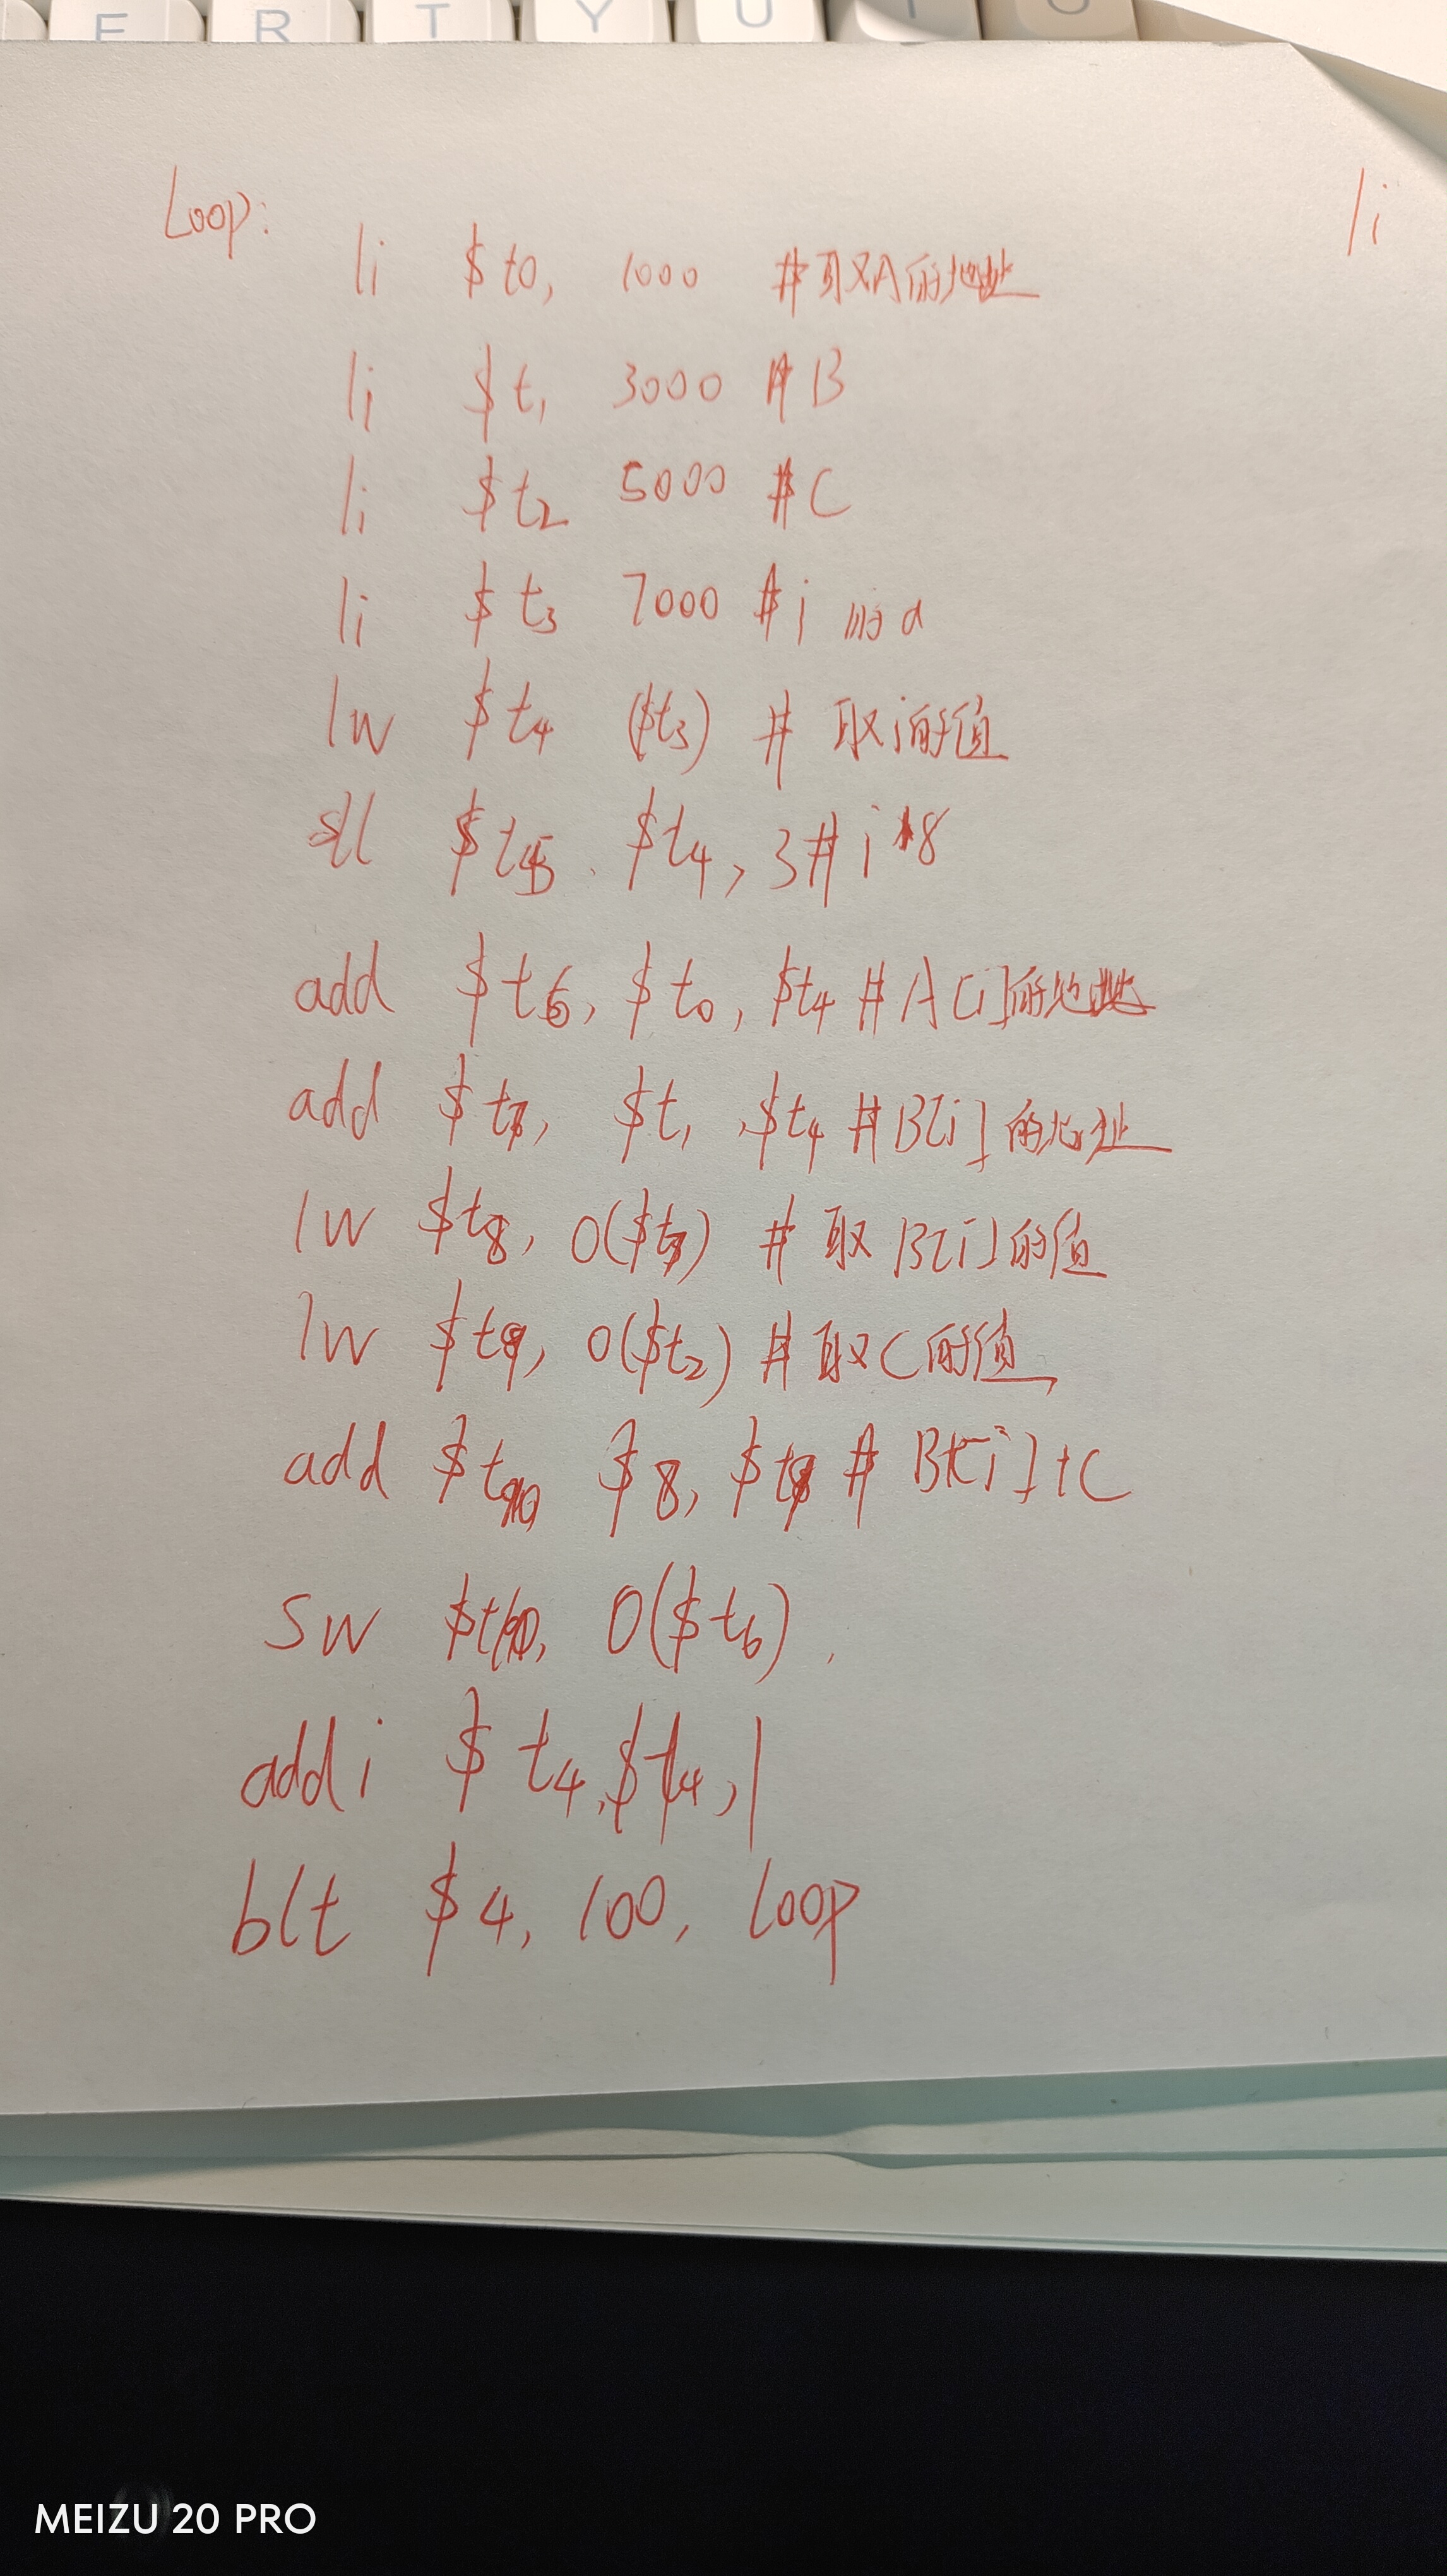 E R T Y U I O
Loop: li
li $t0, 1000 #取A的地址
li $t1 3000 #B
li $t2 5000 #C
li $t3 7000 #i
lw $t4 ($t3) # 取i的值
sll $t5 $t4, 3 #i*8
add $t6, $t0, $t4 #A[i]的地址
add $t7, $t1, $t4 #B[i]的地址
lw $t8, 0($t7) # 取B[i]的值
lw $t9, 0($t2) #取C的值
add $t10, $8, $t9 # B[i]+C
sw $t10, 0($t6).
addi $t4,$t4,1
blt $4, 100, loop
MEIZU 20 PRO